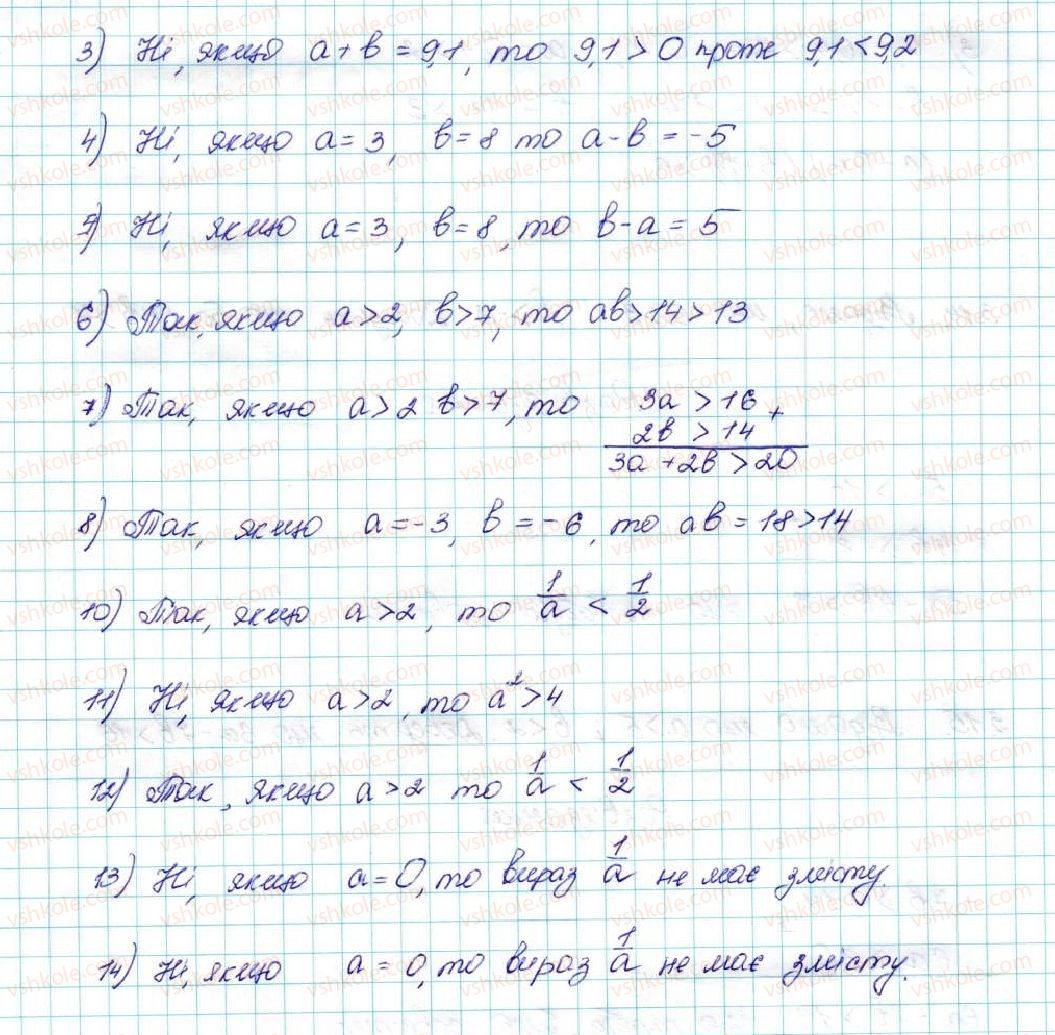 3) Ні, якщо a + b = 9,1, то 9,1 > 0 проте 9,1 < 9,2
4) Ні, якщо a = 3, b = 8 то a - b = -5
5) Ні, якщо a = 3, b = 8, то b - a = 5
6) Так, якщо a > 2, b > 7, то ab > 14 > 13
7) Так, якщо a > 2 b > 7, то 3a > 16 +
2b > 14
3a + 2b > 20
8) Так, якщо a = -3, b = -6, то ab = 18 > 14
10) Так, якщо a > 2, то 1/a < 1/2
11) Ні, якщо a > 2, то a² > 4
12) Так, якщо a > 2 то 1/a < 1/2
13) Ні, якщо a = 0, то вираз 1/a не має змісту.
14) Ні, якщо a = 0, то вираз 1/a не має змісту.